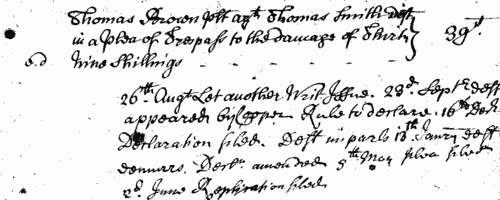 Thomas Brown plt agt Thomas Smith Deft
in a Plea of Trespass to the Damage of Thirty } 39s.
e.d Nine Shillings
26th. Augt Let another Writ Issue. 23d. Septr. deft
appeared by Copper Rule to declare. 16th Decr.
Declaration filed. Deft imparls 13th Janry deft
demurrs. Decln amended 5th May plea filed
2d. June Replication filed